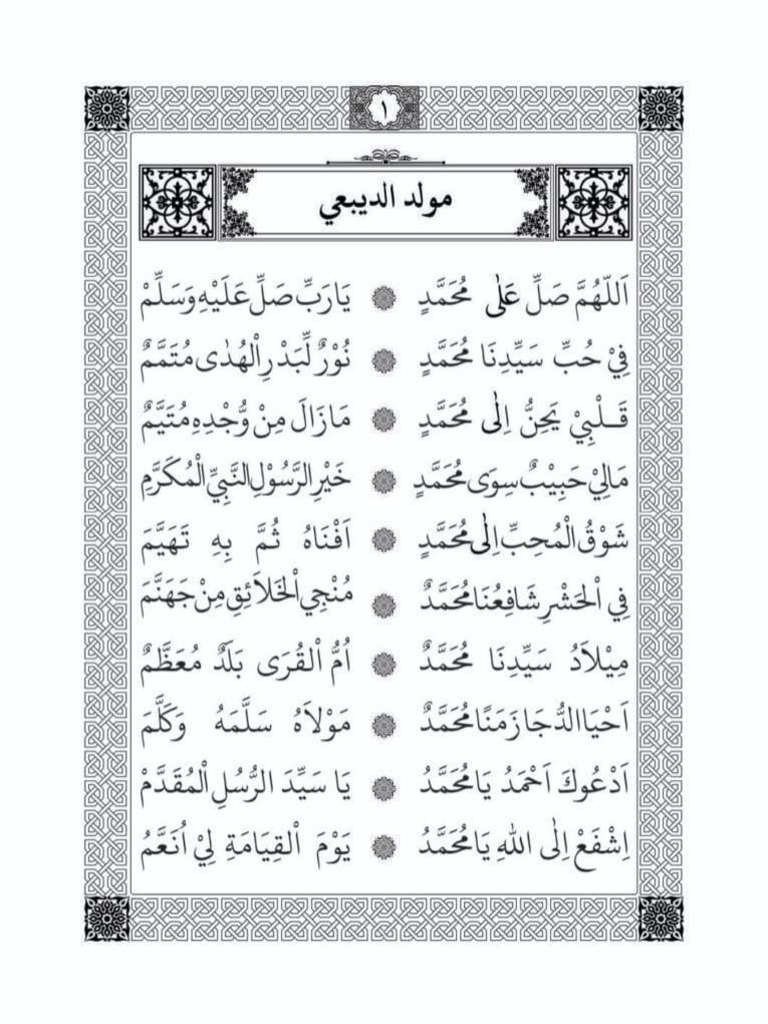 ١
مولد الديبعي
اَللّٰهُمَّ صَلِّ عَلٰى مُحَمَّدٍ ۞ يَارَبِّ صَلِّ عَلَيْهِ وَسَلِّمْ
فِيْ حُبِّ سَيِّدِنَا مُحَمَّدٍ ۞ نُوْرٌ لِّبَدْرِ اْلهُدٰى مُتَمَّمٌ
قَلْبِيْ يَحِنُّ اِلٰى مُحَمَّدٍ ۞ مَازَالَ مِنْ وُّجْدِهِ مُتَيَّمٌ
مَالِيْ حَبِيْبٌ سِوَى مُحَمَّدٍ ۞ خَيْرِ الرَّسُوْلِ النَّبِيِّ الْمُكَرَّمِ
شَوْقُ الْمُحِبِّ اِلٰى مُحَمَّدٍ ۞ اَفْنَاهُ ثُمَّ بِهِ تَهَيَّمَ
فِي اْلحَشْرِ شَافِعُنَا مُحَمَّدٌ ۞ مُنْجِي اْلخَلاَئِقِ مِنْ جَهَنَّمَ
مِيْلاَدُ سَيِّدِنَا مُحَمَّدٌ ۞ اُمُّ اْلقُرَى بَلَدٌ مُعَظَّمٌ
اَحْيَا الدُّجَا زَمَنًا مُحَمَّدٌ ۞ مَوْلاَهُ سَلَّمَهُ وَكَلَّمَ
اَدْعُوكَ اَحْمَدُ يَا مُحَمَّدُ ۞ يَا سَيِّدَ الرُّسُلِ اْلمُقَدَّمْ
اِشْفَعْ اِلٰى اللهِ يَا مُحَمَّدُ ۞ يَوْمَ اْلقِيَامَةِ لِيْ اُنَعَّمُ